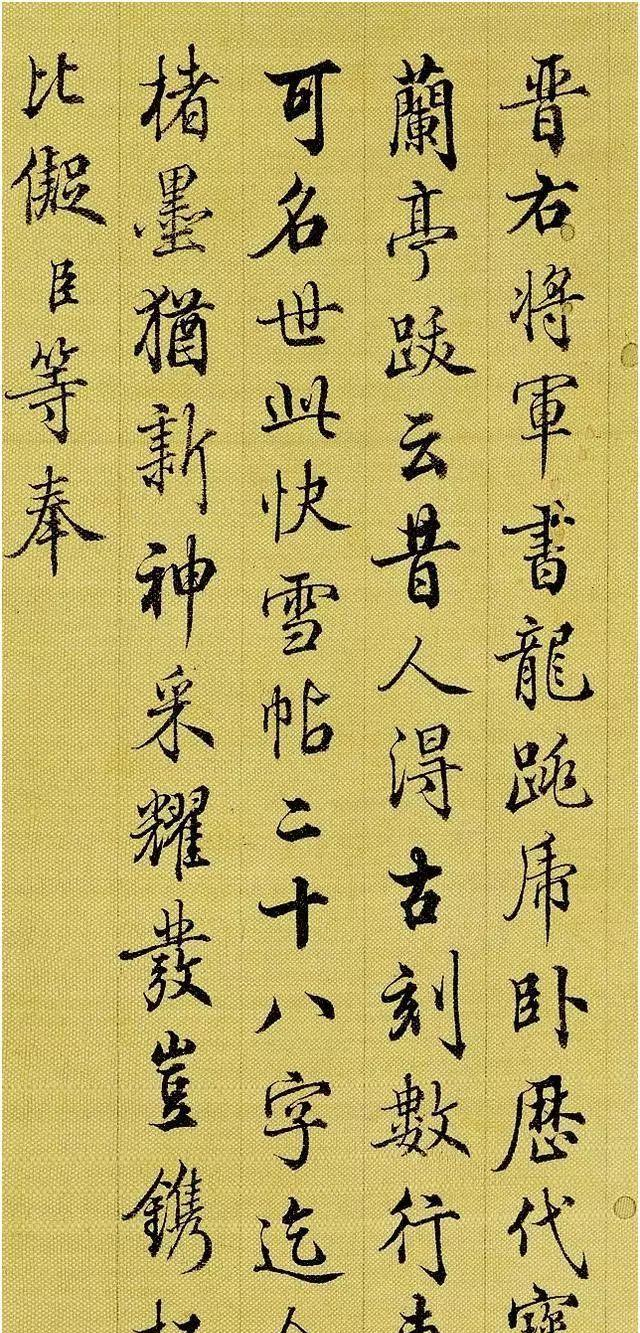 晋右将軍書龍跳虎卧歷代寶
蘭亭跋云昔人得古刻數行專
可名世此快雪帖二十八字迄今
楮墨猶新神采耀發豈鐫
比儗臣等奉